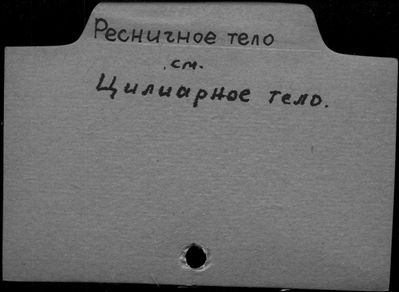 Ресничное тело
см.
Цилиарное тело.